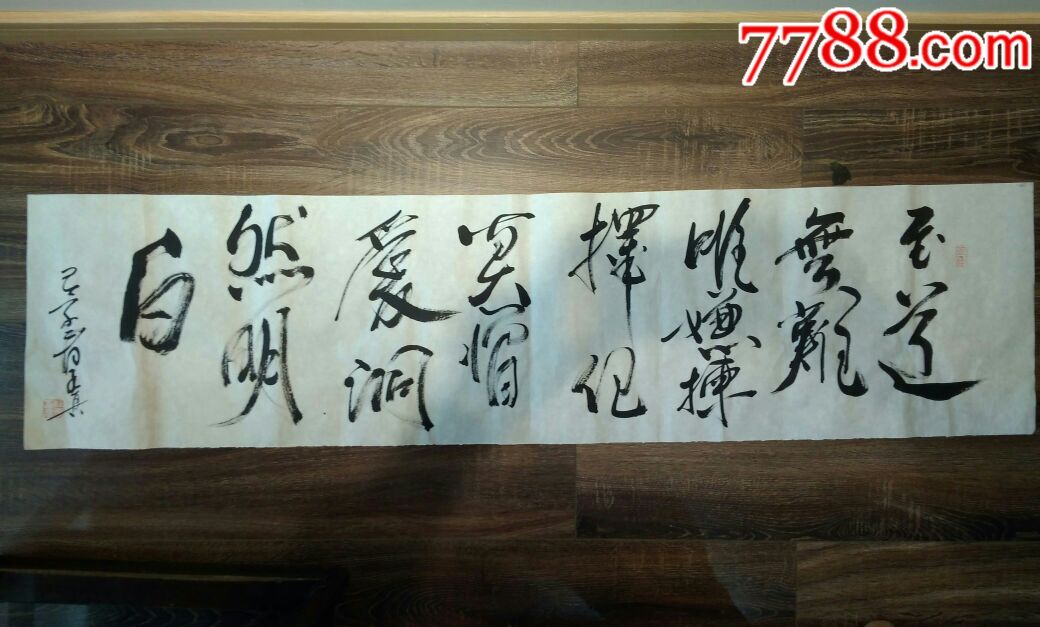 7788.com
至道
無難
唯嫌揀
擇但
莫憎
愛洞
然明
白